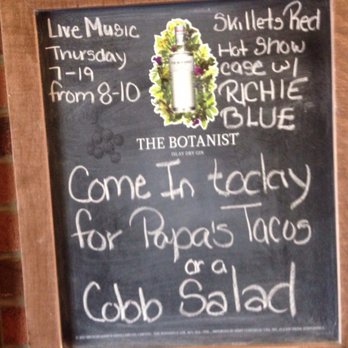 Live Music
Thursday
7-19
from 8-10
Skillets Red
Hot Show
case w/
RICHIE
BLUE
THE BOTANIST
ISLAY DRY GIN
Come In today
for Papa's Tacos
or a
Cobb Salad